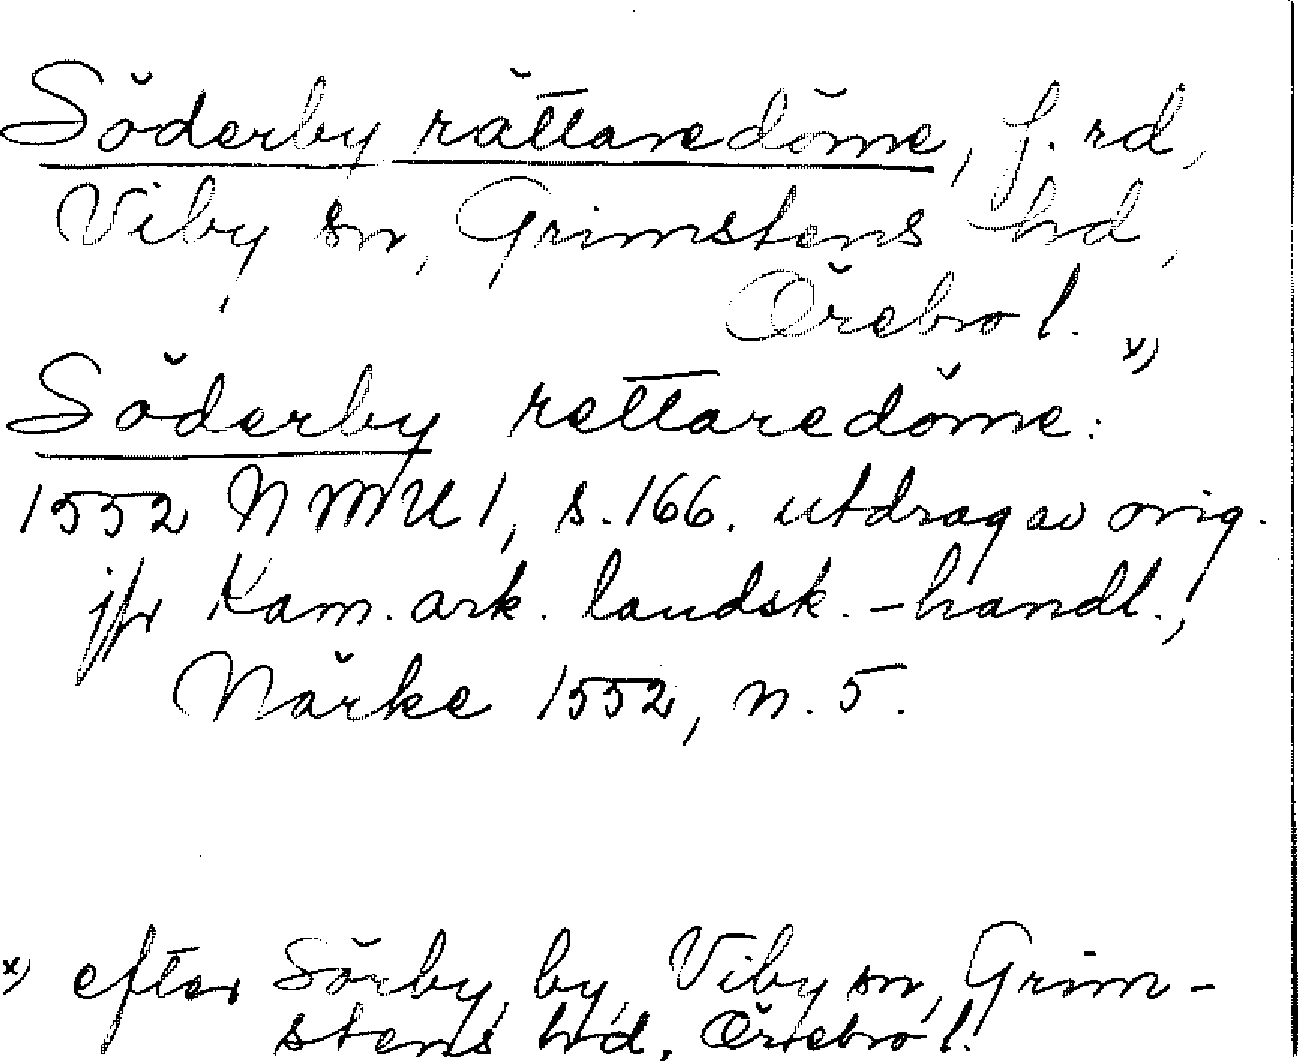 Söderby rättaredöme, f. rd,
Viby sn, Grimstens hd,
Örebro l.
Söderby rettaredöme: x)
1552 NMU 1, s. 166. utdrag av orig.
jfr Kam. ark. landsk. -handl.,
Närke 1552, n. 5.
x) efter Sörby, by, Viby sn, Grim-
stens hd, Örebro l.